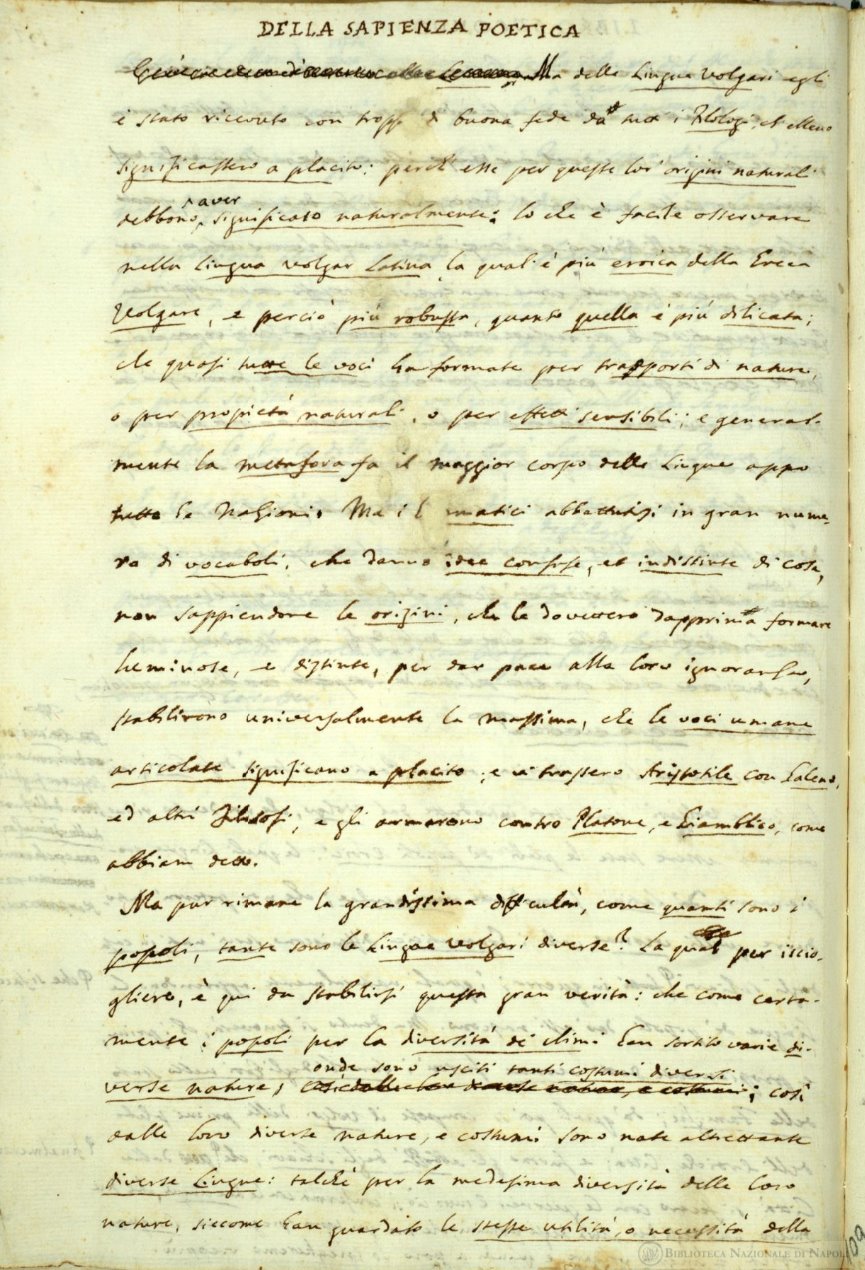 DELLA SAPIENZA POETICA
Ma delle Lingue Volgari egli
è stato ricevuto con troppo di buona fede da tutti i Filologi, ch'elleno
significassero a placito: perch' esse per queste lor' origini naturali
debbono aver significato naturalmente: lo che è facile osservare
nella Lingua volgar Latina la qual' è più eroica della Greca
Volgare, e perciò più robusta, quanto quella è più dilicata;
che quasi tutte le voci ha formate per trasporti di nature,
o per propietà naturali, o per effetti sensibili; e general-
mente la metafora fa il maggior corpo delle Lingue appo
tutte le Nazioni. Ma i Gramatici abbattutisi in gran nume-
ro di vocaboli, che danno idee confuse, et indistinte di cose,
non sappiendone le origini, che le dovettero dapprima formare
luminose, e distinte, per dar pace alla loro ignoranza,
stabilirono universalmente la massima, che le voci umane
articolate significano a placito; e vi trassero Aristotile con Galeno,
ed altri Filosofi, e gli armarono contro Platone, e Giamblico, come
abbiam detto.
Ma pur rimane la grandissima difficultà, come quanti sono i
popoli, tante sono le Lingue volgari diverse? La qual per iscio-
gliere, è qui da stabilirsi questa gran verità: che come certa-
mente i popoli per la diversità de' climi han sortito varie di-
verse nature, onde sono usciti tanti costumi diversi; così
dalle loro diverse nature, e costumi sono nate altrettante
diverse Lingue: talchè per la medesima diversità delle loro
nature, siccome han guardato le stesse utilità, o necessità della
BIBLIOTECA NAZIONALE DI NAPOLI